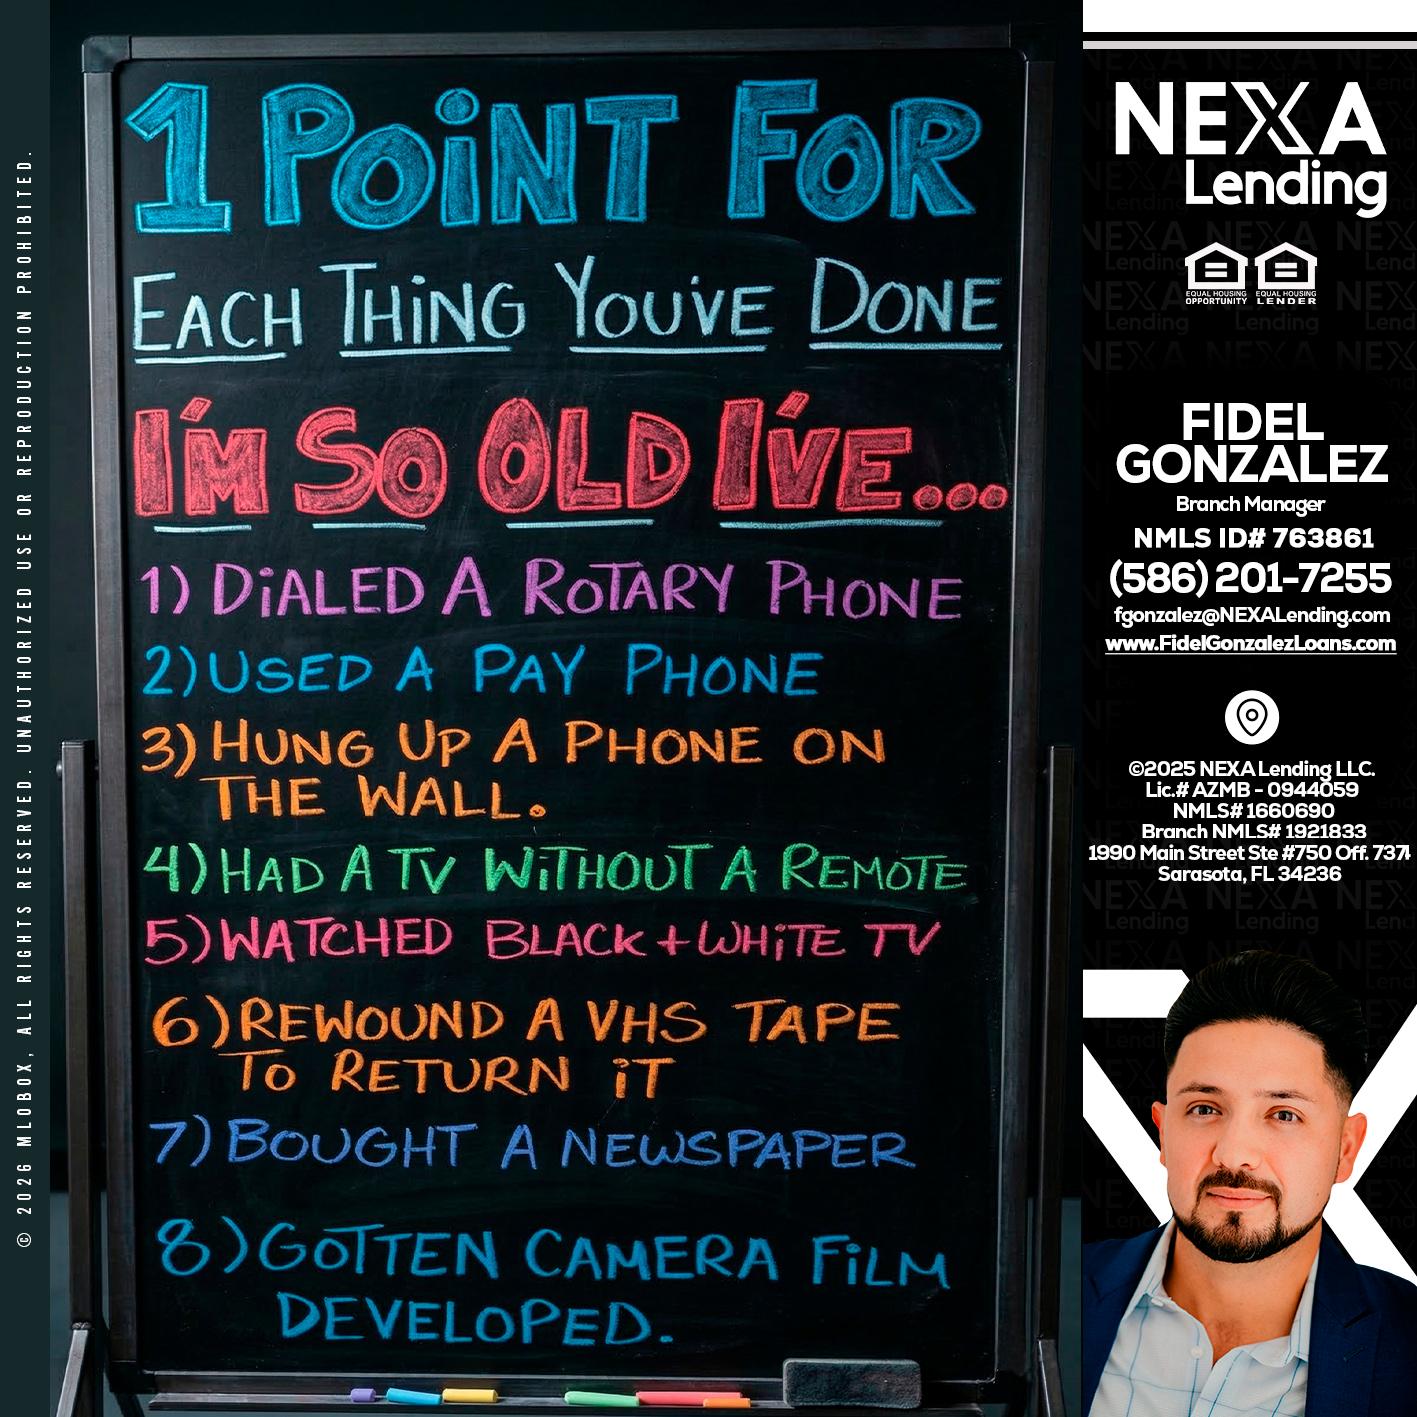 © 2026 MLOBOX, ALL RIGHTS RESERVED. UNAUTHORIZED USE OR REPRODUCTION PROHIBITED.
1 POiNT FOR
EACH THiNG YOU'VE DONE
I'M SO OLD I'VE...
1) DiALED A ROTARY PHONE
2) USED A PAY PHONE
3) HUNG UP A PHONE ON
THE WALL.
4) HAD A TV WiTHOUT A REMOTE
5) WATCHED BLACK + WHiTE TV
6) REWOUND A VHS TAPE
TO RETURN iT
7) BOUGHT A NEWSPAPER
8) GOTTEN CAMERA FiLM
DEVELOPED.
NEXA
Lending
EQUAL HOUSING OPPORTUNITY
EQUAL HOUSING LENDER
FIDEL
GONZALEZ
Branch Manager
NMLS ID# 763861
(586) 201-7255
fgonzalez@NEXALending.com
www.FidelGonzalezLoans.com
©2025 NEXA Lending LLC.
Lic.# AZMB - 0944059
NMLS# 1660690
Branch NMLS# 1921833
1990 Main Street Ste #750 Off. 737A
Sarasota, FL 34236